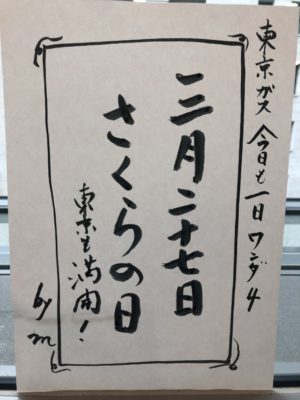 東京ガス 今日も一日ワンダ4
三月二十七日
さくらの日
東京も満開!
by m